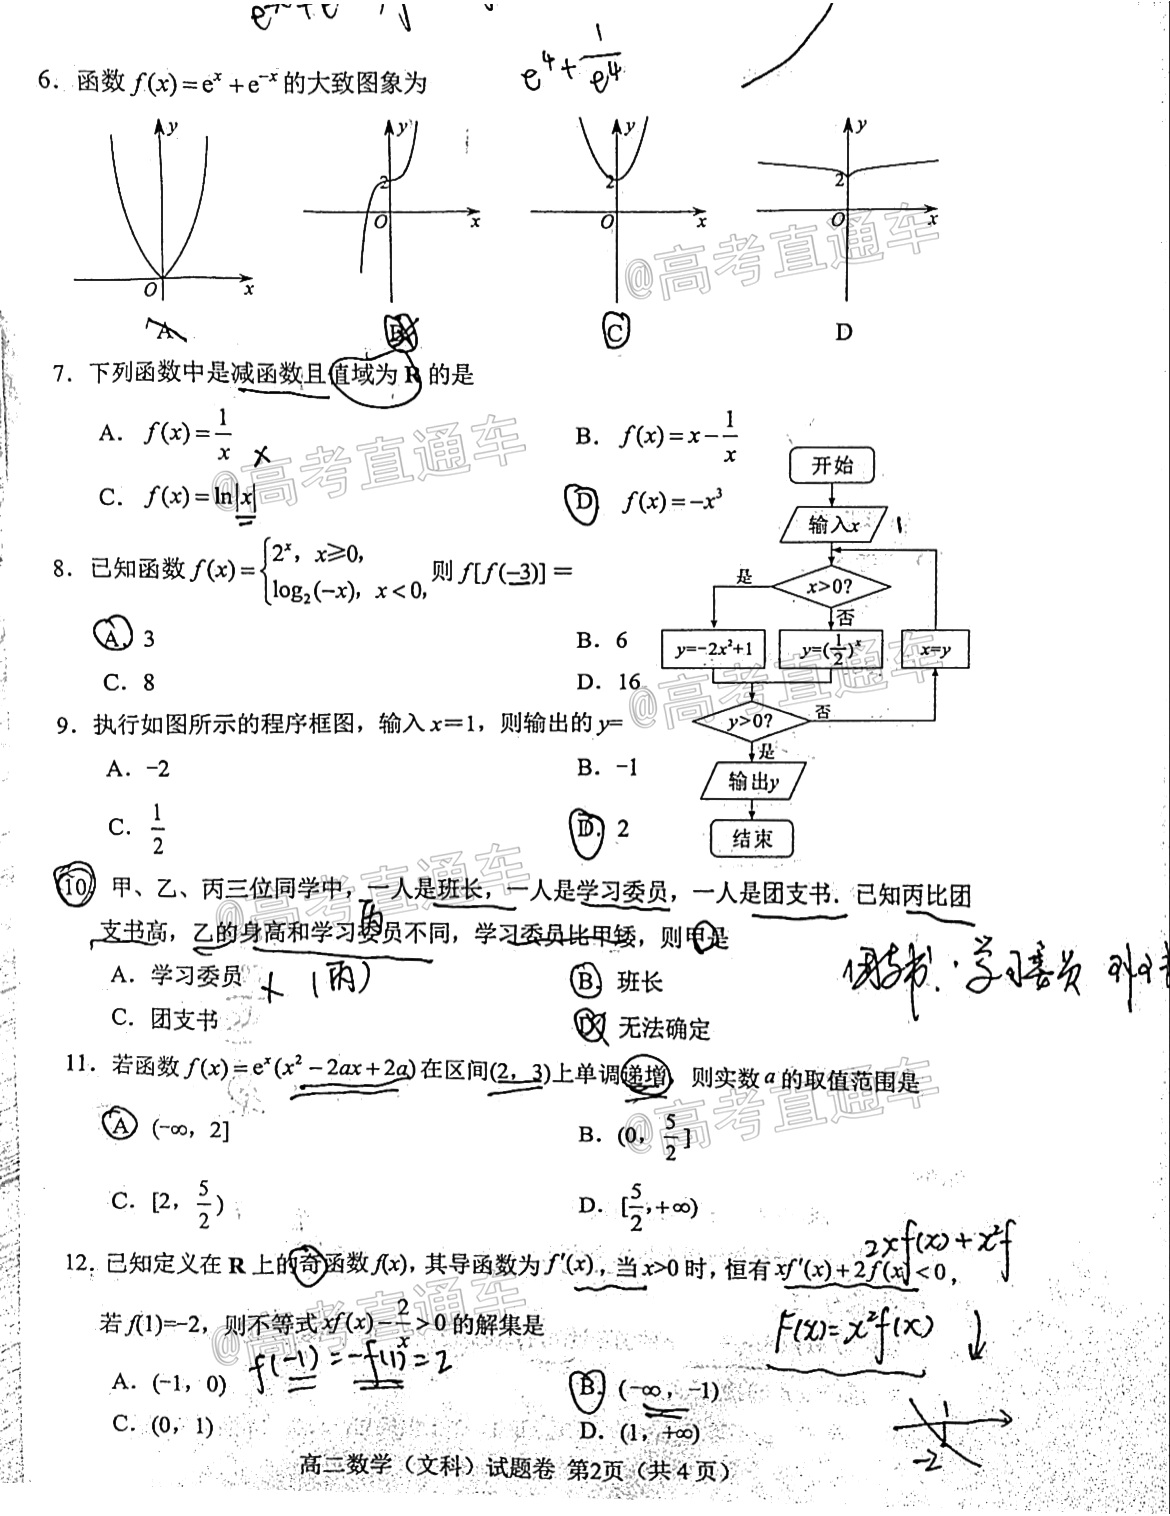 e⁴+1/e⁴
6. 函数 f(x)=eˣ+e⁻ˣ的大致图象为
y y y y
2 2 2
O x O x O x O x
A B C D
@高考直通车
7. 下列函数中是减函数且值域为 R 的是
A. f(x)=1/x x B. f(x)=x-1/x
C. f(x)=ln|x| D f(x)=-x³
@高考直通车
8. 已知函数 f(x)={2ˣ, x≥0, log₂(-x), x<0, 则 f[f(-3)]=
A. 3 B. 6
C. 8 D. 16
9. 执行如图所示的程序框图,输入 x=1,则输出的 y=
A. -2 B. -1
C. 1/2 D. 2
开始
输入x 1
x>0?
是 否
y=-2x²+1 y=(1/2)ˣ x=y
y>0? 否
是
输出y
结束
@高考直通车
10 甲、乙、丙三位同学中,一人是班长,一人是学习委员,一人是团支书.已知丙比团
支书高,乙的身高和学习委员不同,学习委员比甲矮,则甲是
丙
A. 学习委员 x (丙) B. 班长
C. 团支书 D. 无法确定
团支书. 学习委员
@高考直通车
11. 若函数 f(x)=eˣ(x²-2ax+2a)在区间(2, 3)上单调递增, 则实数 a 的取值范围是
A (-∞, 2] B. (0, 5/2]
C. [2, 5/2) D. [5/2,+∞)
@高考直通车
2xf(x)+x²f
12. 已知定义在 R 上的奇函数 f(x),其导函数为 f′(x),当 x>0 时,恒有 xf′(x)+2f(x)<0,
若 f(1)=-2,则不等式 xf(x)-2/x>0 的解集是
F(x)=x²f(x) ↓
f(-1)=-f(1)=2
A. (-1, 0) B. (-∞, -1)
C. (0, 1) D. (1, +∞)
1
-2
@高考直通车
高二数学(文科)试题卷 第2页(共 4 页)